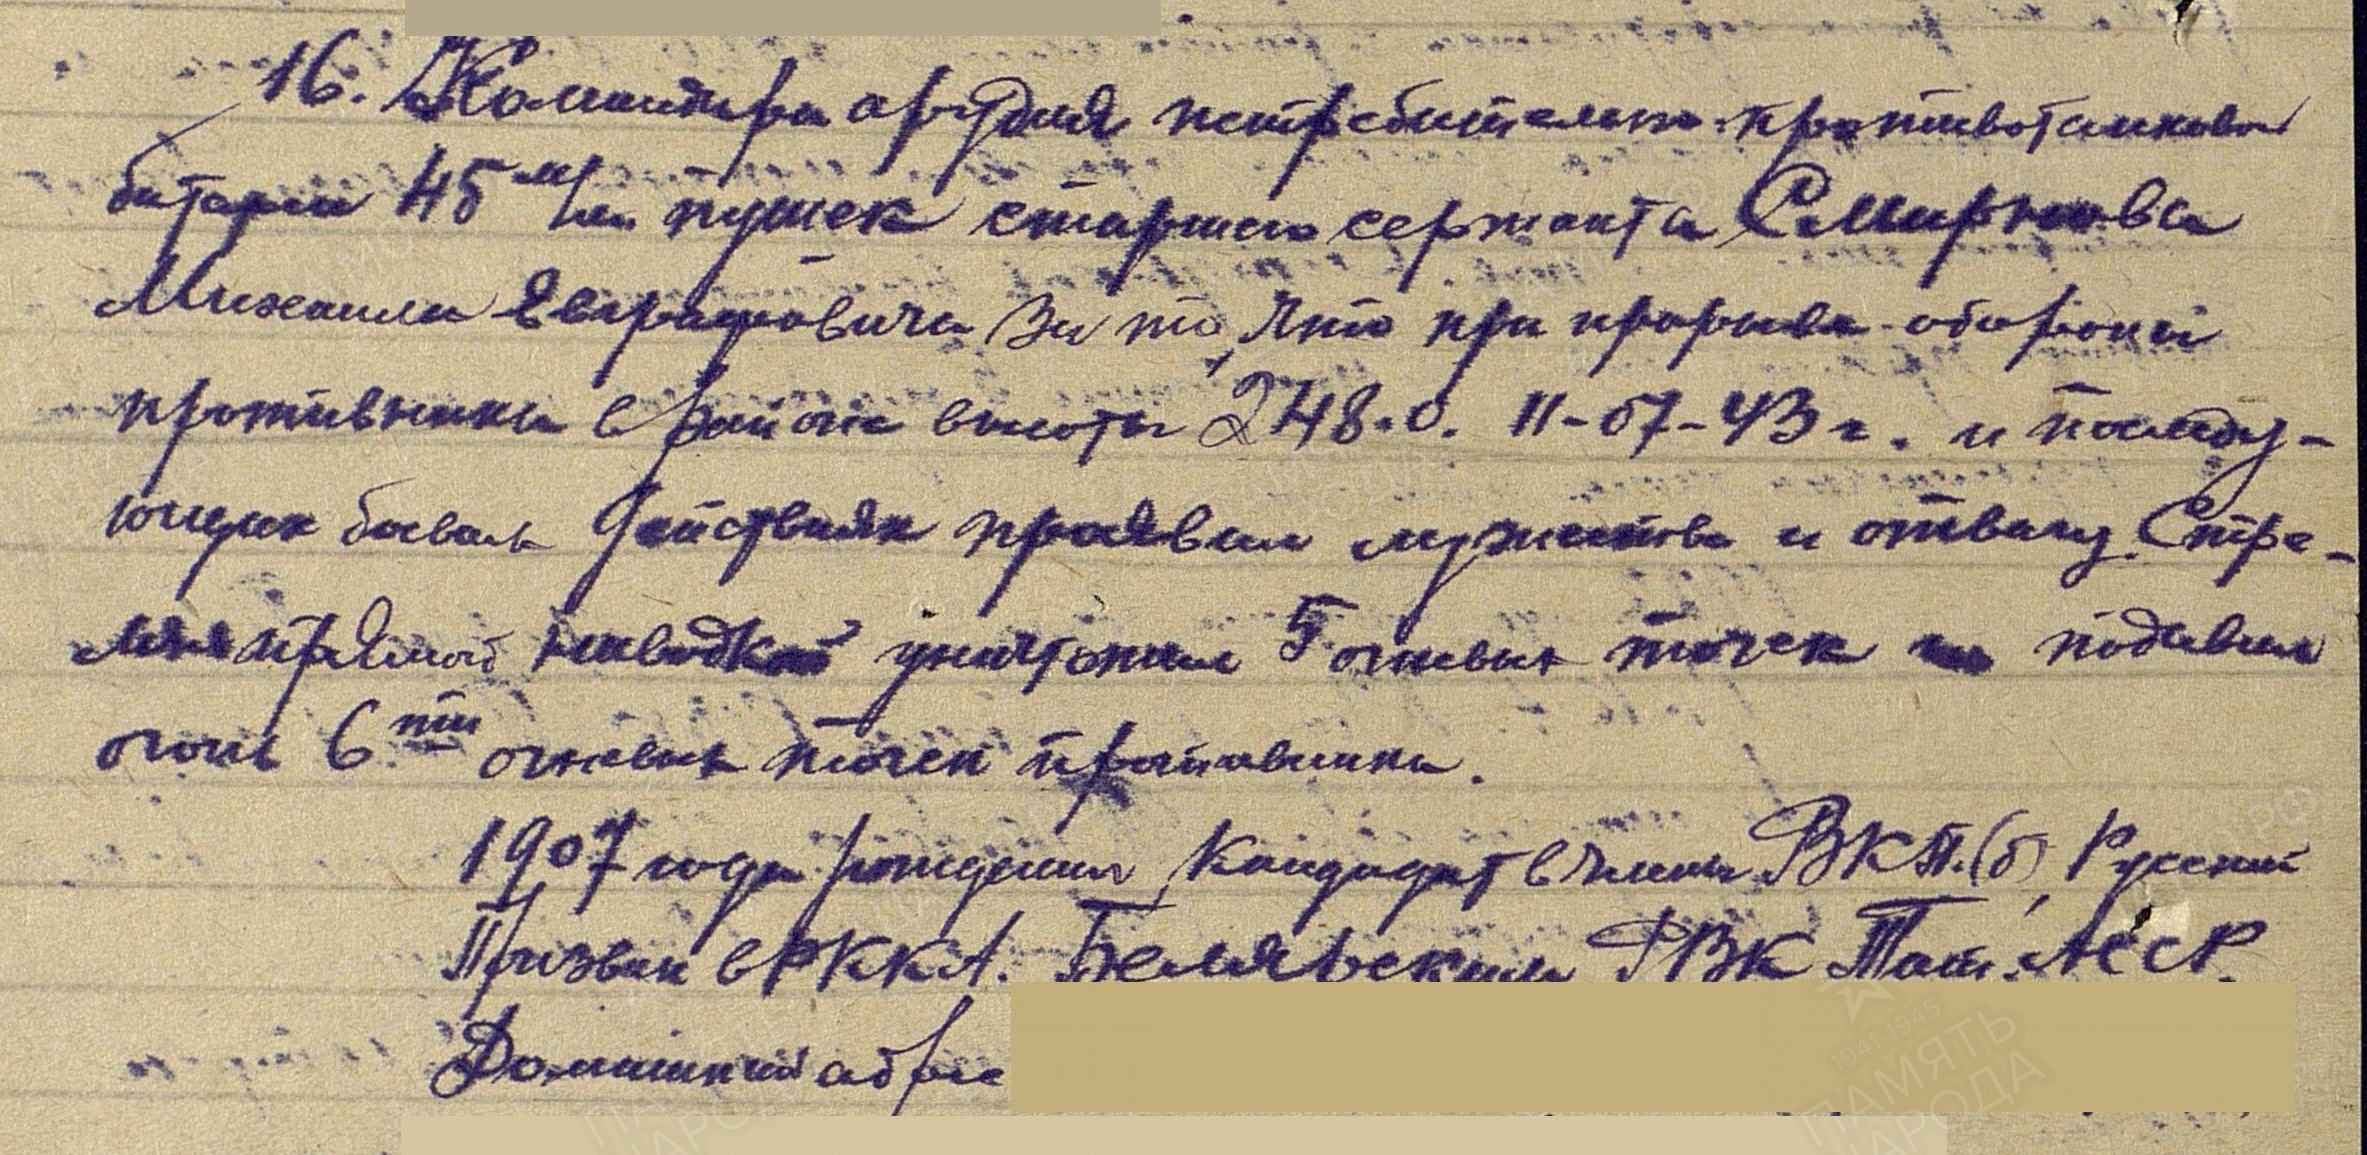 16. Командира орудия истребительно-противотанковой
батареи 45 м/м пушек старшего сержанта Смирнова
Михаила Еварафовича за то, что при прорыве обороны
противника в районе высоты 248.0. 11-07-43 г. и последу-
ющих боевых действиях проявил мужество и отвагу. Стре-
ляя прямой наводкой уничтожил 5 огневых точек и подавил
огонь 6ти огневых точек противника.
1907 года рождения, Кандидат в члены ВКП.(б), Русский
Призван в РККА. Белярьским РВК Тат. АССР.
Домашний адрес
1941-1945
ПАМЯТЬ
НАРОДА